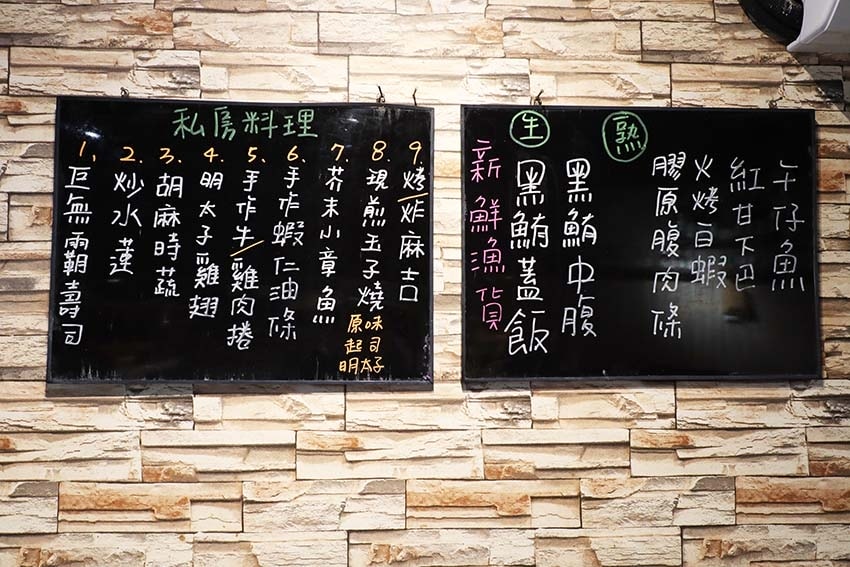 私房料理
1. 巨無霸壽司
2. 炒水蓮
3. 胡麻時蔬
4. 明太子雞翅
5. 手作牛雞肉捲
6. 手作蝦仁油條
7. 芥末小章魚
8. 現煎玉子燒
原味
起司
明太子
9. 烤炸麻吉
新鮮漁貨
生
黑鮪蓋飯
黑鮪中腹
熟
膠原腹肉條
火烤白蝦
紅甘下巴
午仔魚